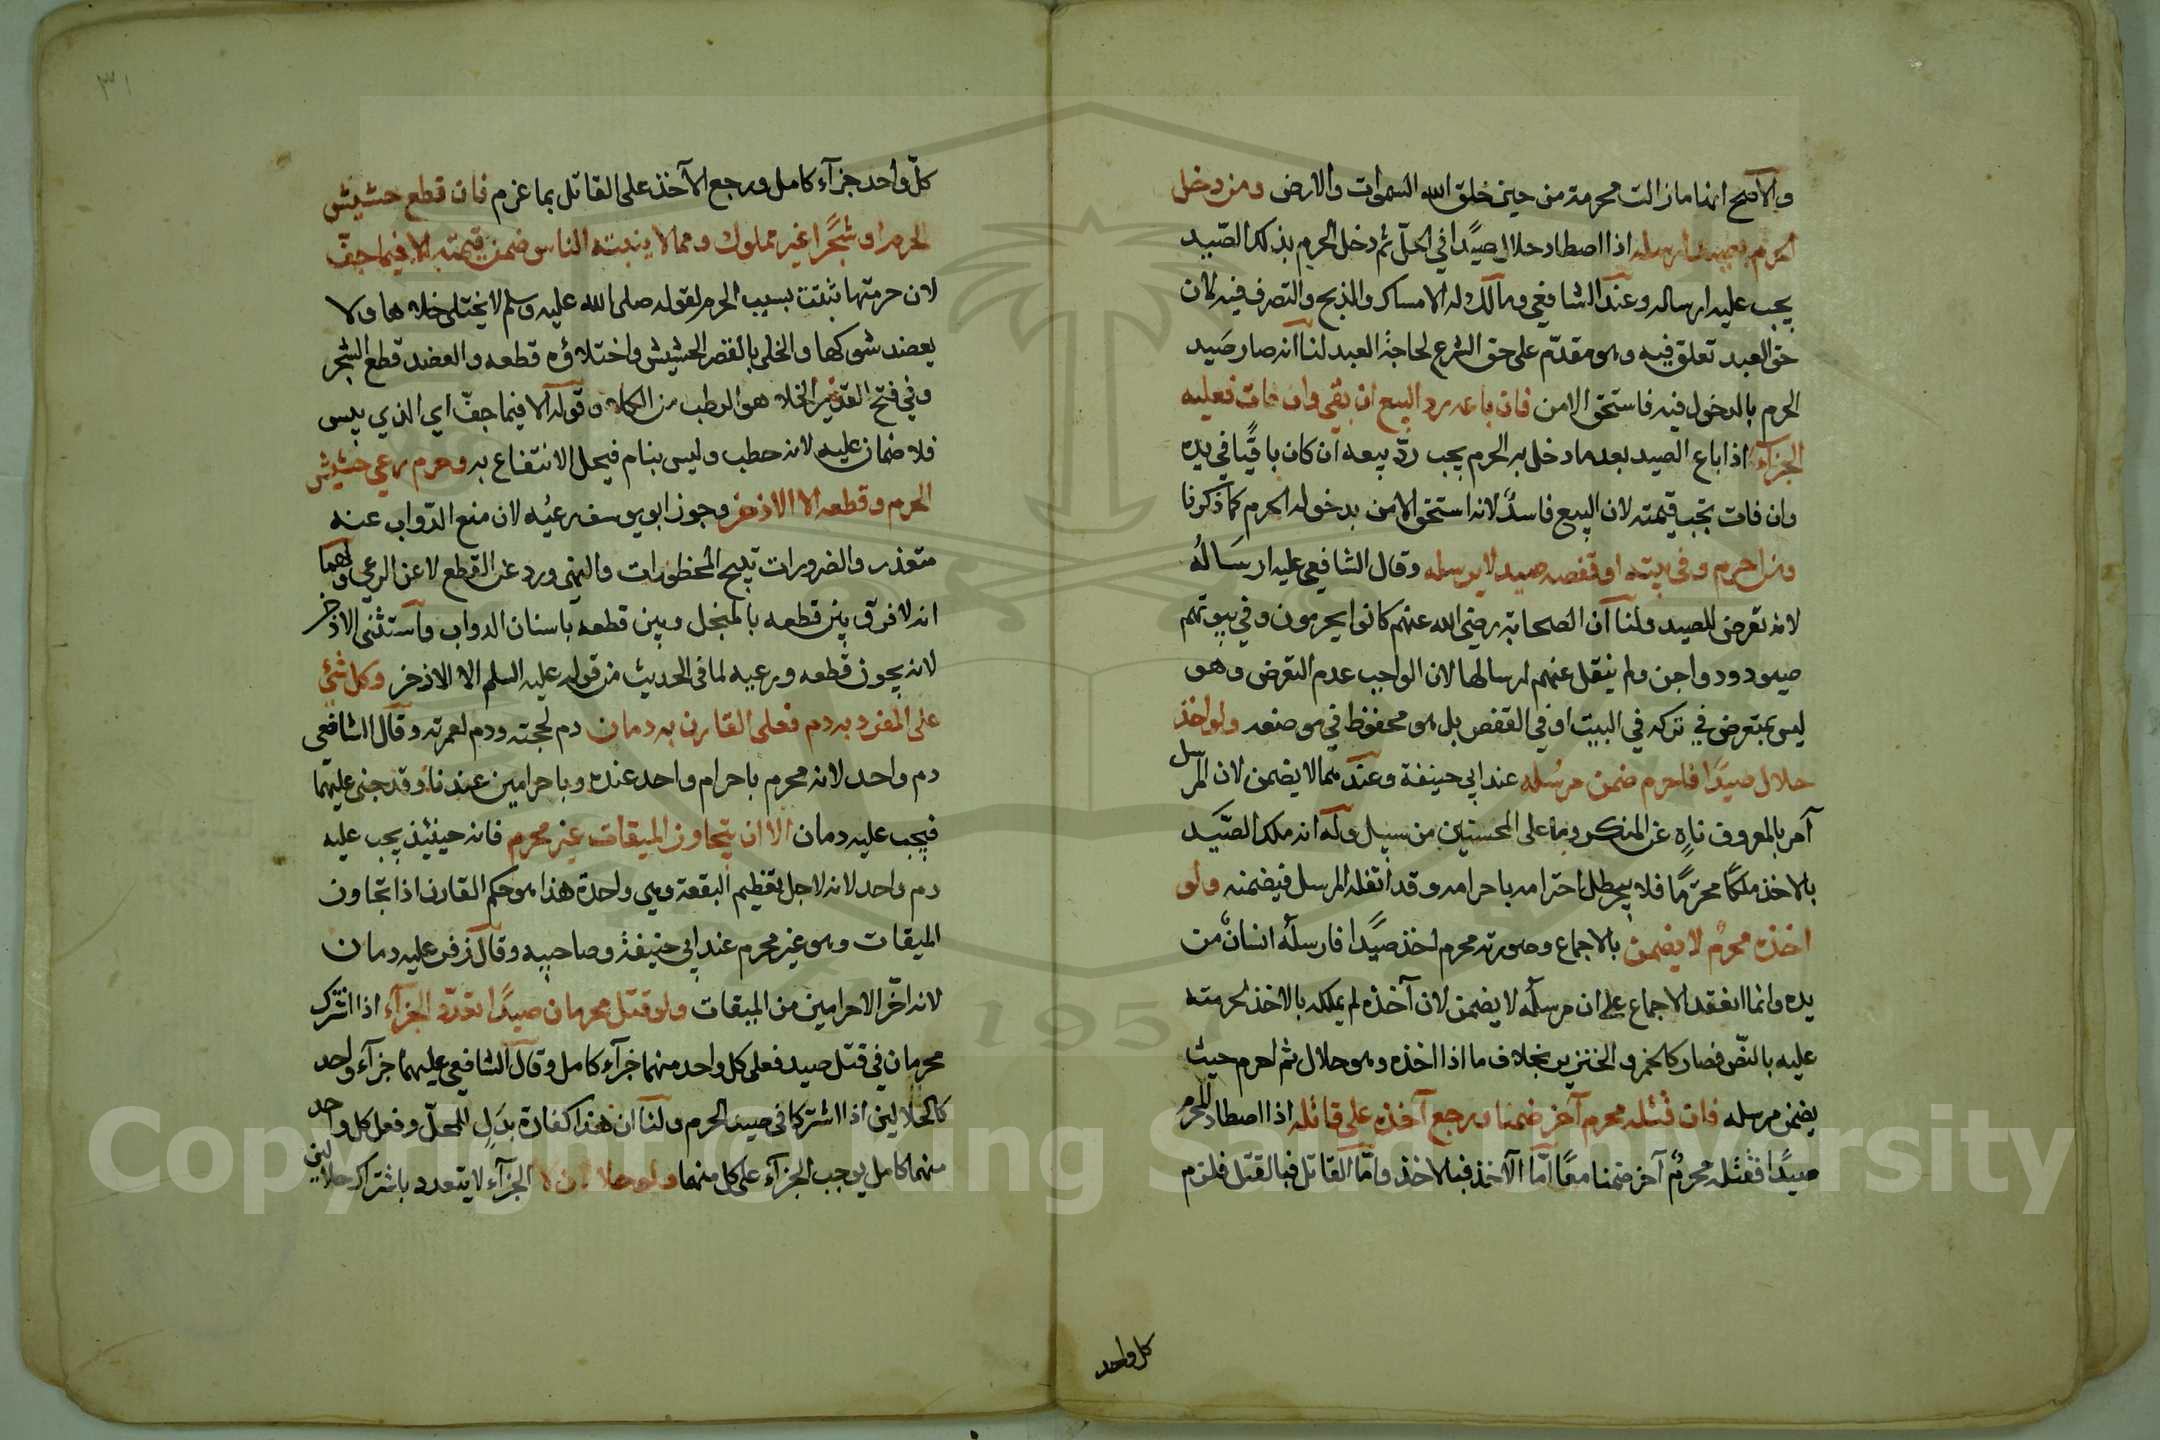 والأصح انها مازالت محرمة من حين خلق الله السموات والارض ومن دخل
الحرم بصيد ارسله اذا اصطاد حلال صيدًا في الحلّ ثم دخل الحرم بذلك الصّيد
يجب عليه ارساله وعند الشافعي ومالك له الامساك والذبح والتصرف فيه لان
حق العبد تعلق فيه وهو مقدّم على حق الشرع لحاجة العبد لنا انه صار صيد
الحرم بالدخول فيه فاستحق الامن فان باعه رد البيع ان بقي وان فات فعليه
الجزآء اذا باع الصيد بعد ما دخل به الحرم يجب ردّ بيعه ان كان باقيًا في يده
وان فات تجب قيمته لان البيع فاسدٌ لانه استحق الامن بدخوله الحرم كما ذكرنا
ومن احرم وفي بيته او قفصه صيد لا يرسله وقال الشافعي عليه ارسَالُه
لانه تعرض للصيد ولنا ان الصحابة رضي الله عنهم كانوا يحرمون وفي بيوتهم
صيود ودواجن ولم ينقل عنهم ارسالها لان الواجب عدم التعرض وهو
ليس بمتعرض في تركه في البيت او في القفص بل هو محفوظ في موضعه ولو اخذ
حلال صيدًا فاحرم ضمن مرسله عند ابي حنيفة وعندهما لا يضمن لان المرسل
آمر بالمعروف ناهٍ عن المنكر وما على المحسنين من سبيل وله انه ملك الصّيد
بالاخذ ملكًا محترمًا فلا يبطل احترامه باحرامه وقد اتلفه المرسل فيضمنه ولو
اخذه محرمٌ لا يضمن بالاجماع وصورته محرم اخذ صيدًا فارسله انسانٌ من
يده وانما انعقد الاجماع على ان مرسله لا يضمن لان آخذه لم يملكه بالاخذ لحرمته
عليه بالنصّ فصار كالخمر والخنزير بخلاف ما اذا اخذه وهو حلال ثم احرم حيث
يضمن مرسله فان قتله محرم آخر ضمنا ورجع آخذه على قاتله اذا اصطاد المحرم
صيدًا فقتله محرمٌ آخر ضمنا معًا امّا الآخذ فبالاخذ وامّا القاتل فبالقتل فلزم
كل واحد
٣١
كلّ واحد جزآء كامل ورجع الآخذ على القاتل بما غرم فان قطع حشيش
الحرم او شجرًا غير مملوك ومما لا ينبته الناس ضمن قيمته الا فيما جفّ
لان حرمتها ثبتت بسبب الحرم لقوله صلى الله عليه وسلم لا يختلى خلاها ولا
يعضد شوكها والخلى بالقصر الحشيش واختلاؤه قطعه والعضد قطع الشجر
وفي فتح القدير الخلا هو الرطب من الكلاء وقوله الا فيما جفّ اي الذي يبس
فلا ضمان عليه لانه حطب وليس بنام فيحل الانتفاع به وحرم رعي حشيش
الحرم وقطعه الا الاذخر وجوز ابو يوسف رعيُه لان منع الدّواب عنه
متعذر والضرورات تبيح المحظورات والنهي ورد عن القطع لا عن الرعي ولهما
انه لا فرق بين قطعه بالمنجل وبين قطعه باسنان الدواب واستثنى الاذخر
لانه يجوز قطعه ورعيه لما في الحديث من قوله عليه السلم الا الاذخر وكل شئ
على المفرد به دم فعلى القارن به دمان دم لحجته ودم لعمرته وقال الشافعي
دم واحد لانه محرم باحرام واحد عنده وباحرامين عندنا وقد جنى عليهما
فيجب عليه دمان الا ان يتجاوز الميقات غير محرم فانه حينئذ يجب عليه
دم واحد لانه لاجل تعظيم البقعة وهي واحدة هذا هو حكم القارن اذا تجاوز
الميقات وهو غير محرم عند ابي حنيفة وصاحبيه وقال زفر عليه دمان
لانه اخّر الاحرامين من الميقات ولو قتل محرمان صيدًا تعدّد الجزآء اذا اشترك
محرمان في قتل صيد فعلى كل واحد منهما جزآء كامل وقال الشافعي عليهما جزآء واحد
كالحلالين اذا اشتركا في صيد الحرم ولنا ان هذا كفارة بدَلِ المحلّ وفعل كل واحد
منهما كامل يوجب الجزآء على كل منهما ولو حلالان لا الجزآء لا يتعدد باشتراك حلالين
Copyright © King Saud University
1957